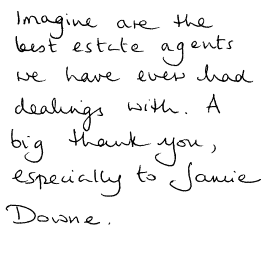 Imagine are the
best estate agents
we have ever had
dealings with. A
big thank you,
especially to Jamie
Downe.